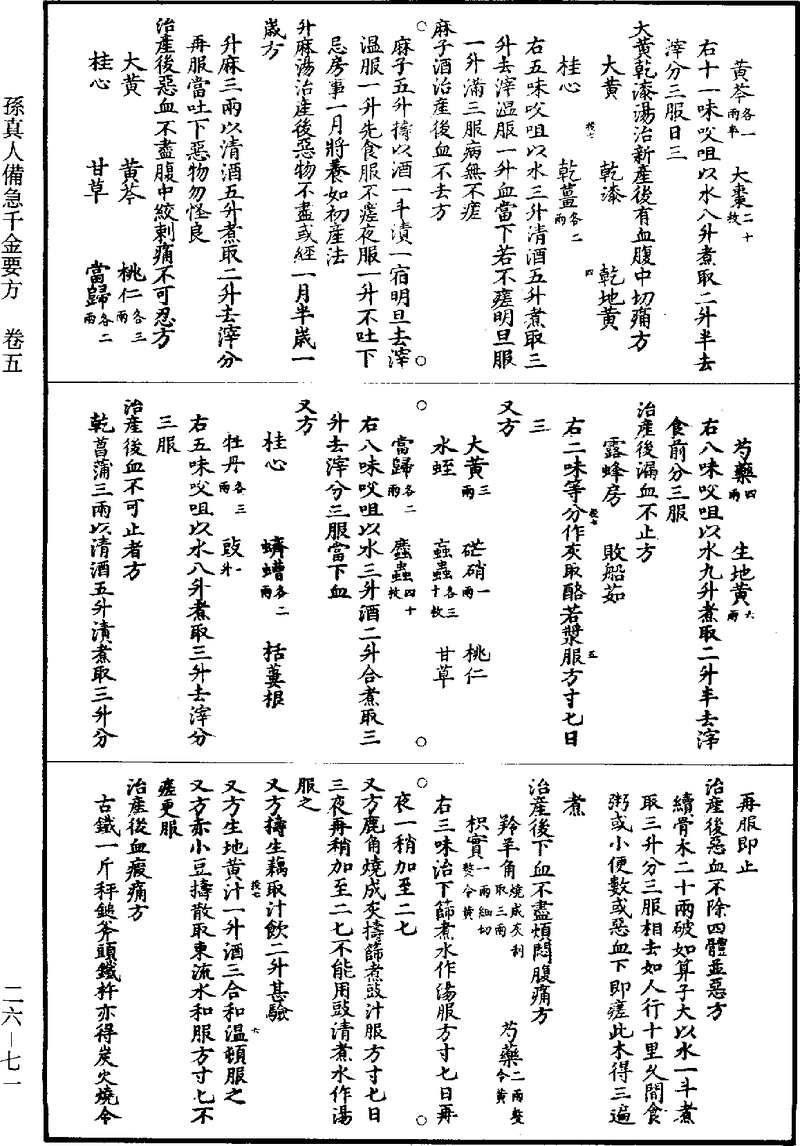 孫真人備急千金要方　卷五
二六—七一
黃芩各一兩半　大棗二十枚
右十一味㕮咀以水八升煮取二升半去
滓分三服日三
大黃乾漆湯治新產後有血腹中切痛方
大黃　乾漆　乾地黃
桂心　乾薑各二兩
右五味㕮咀以水三升清酒五升煮取三
升去滓溫服一升血當下若不瘥明旦服
一升滿三服病無不瘥
麻子酒治產後血不去方
麻子五升擣以酒一斗漬一宿明旦去滓
溫服一升先食服不瘥夜服一升不吐下
忌房事一月將養如初產法
升麻湯治產後惡物不盡或經一月半歲一
歲方
升麻三兩以清酒五升煮取二升去滓分
再服當吐下惡物勿怪良
治產後惡血不盡腹中絞刺痛不可忍方
大黃　黃芩　桃仁各三兩
桂心　甘草　當歸各二兩
芍藥四兩　生地黃六兩
右八味㕮咀以水九升煮取二升半去滓
食前分三服
治產後漏血不止方
露蜂房　敗船茹
右二味等分作灰取酪若漿服方寸匕日
三
又方
大黃三兩　芒硝一兩　桃仁
水蛭　蝱蟲各三十枚　甘草
當歸各二兩　䗪蟲四十枚
右八味㕮咀以水三升酒二升合煮取三
升去滓分三服當下血
又方
桂心　蠐螬各二兩　栝蔞根
牡丹各三兩　豉一升
右五味㕮咀以水八升煮取三升去滓分
三服
治產後血不可止者方
乾菖蒲三兩以清酒五升漬煮取三升分
再服即止
治產後惡血不除四體並惡方
續骨木二十兩破如算子大以水一斗煮
取三升分三服相去如人行十里久間食
粥或小便數或惡血下即瘥此木得三遍
煮
治產後下血不盡煩悶腹痛方
羚羊角燒成灰刮取三兩　芍藥二兩熬令黃
枳實一兩細切熬令黃
右三味治下篩煮水作湯服方寸匕日再
夜一稍加至二匕
又方鹿角燒成灰擣篩煮豉汁服方寸匕日
三夜再稍加至二匕不能用豉清煮水作湯
服之
又方擣生藕取汁飲二升甚驗
又方生地黃汁一升酒三合和溫頓服之
又方赤小豆擣散取東流水和服方寸匕不
瘥更服
治產後血瘕痛方
古鐵一斤秤鎚斧頭鐵杵亦得炭火燒令